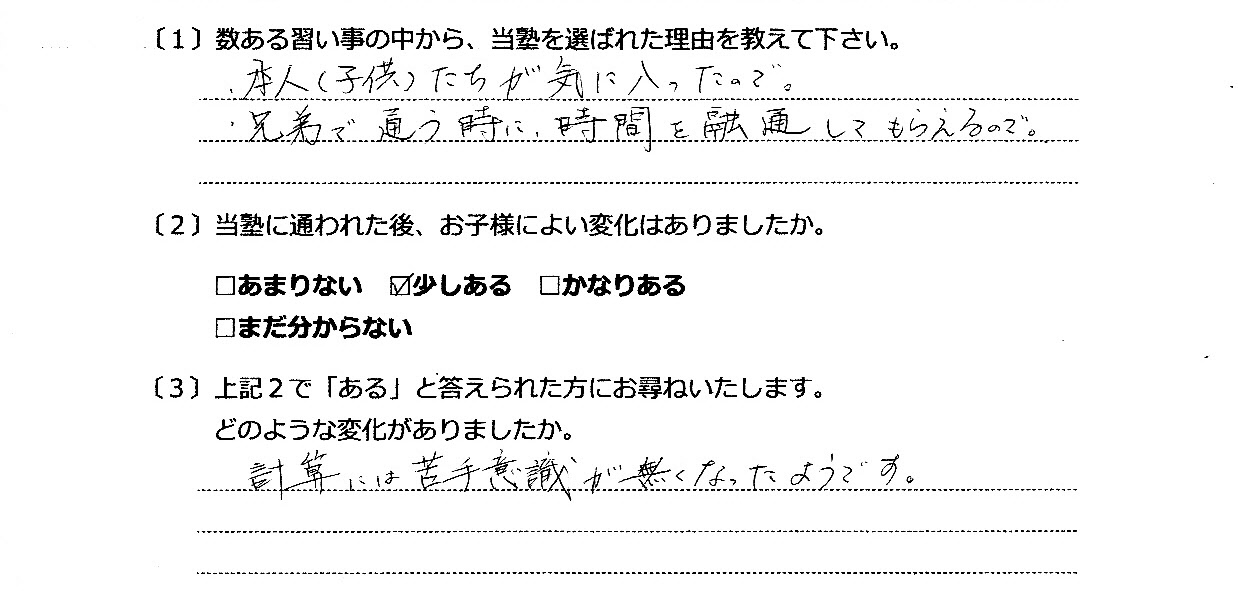 〔１〕数ある習い事の中から、当塾を選ばれた理由を教えて下さい。
・本人(子供)たちが気に入ったので。
・兄弟で通う時に、時間を融通してもらえるので。
〔２〕当塾に通われた後、お子様によい変化はありましたか。
□あまりない ☑少しある □かなりある
□まだ分からない
〔３〕上記２で「ある」と答えられた方にお尋ねいたします。
どのような変化がありましたか。
計算には苦手意識が無くなったようです。